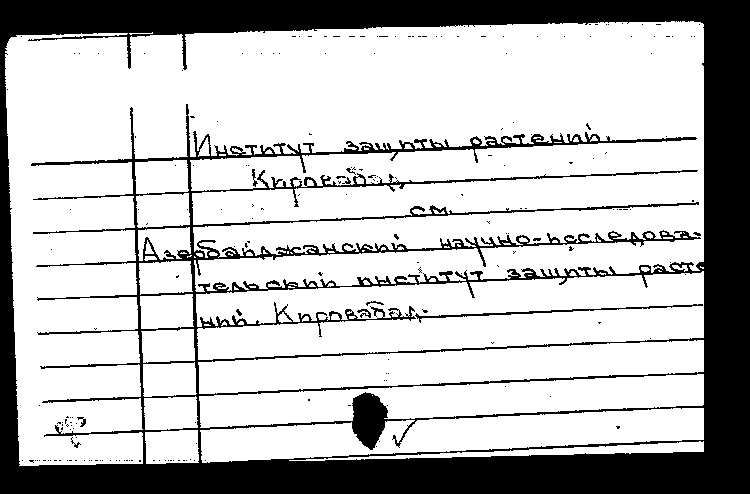 Институт защиты растений.
Кировабад.
см.
Азербайджанский научно-исследова-
тельский институт защиты расте
ний. Кировабад.